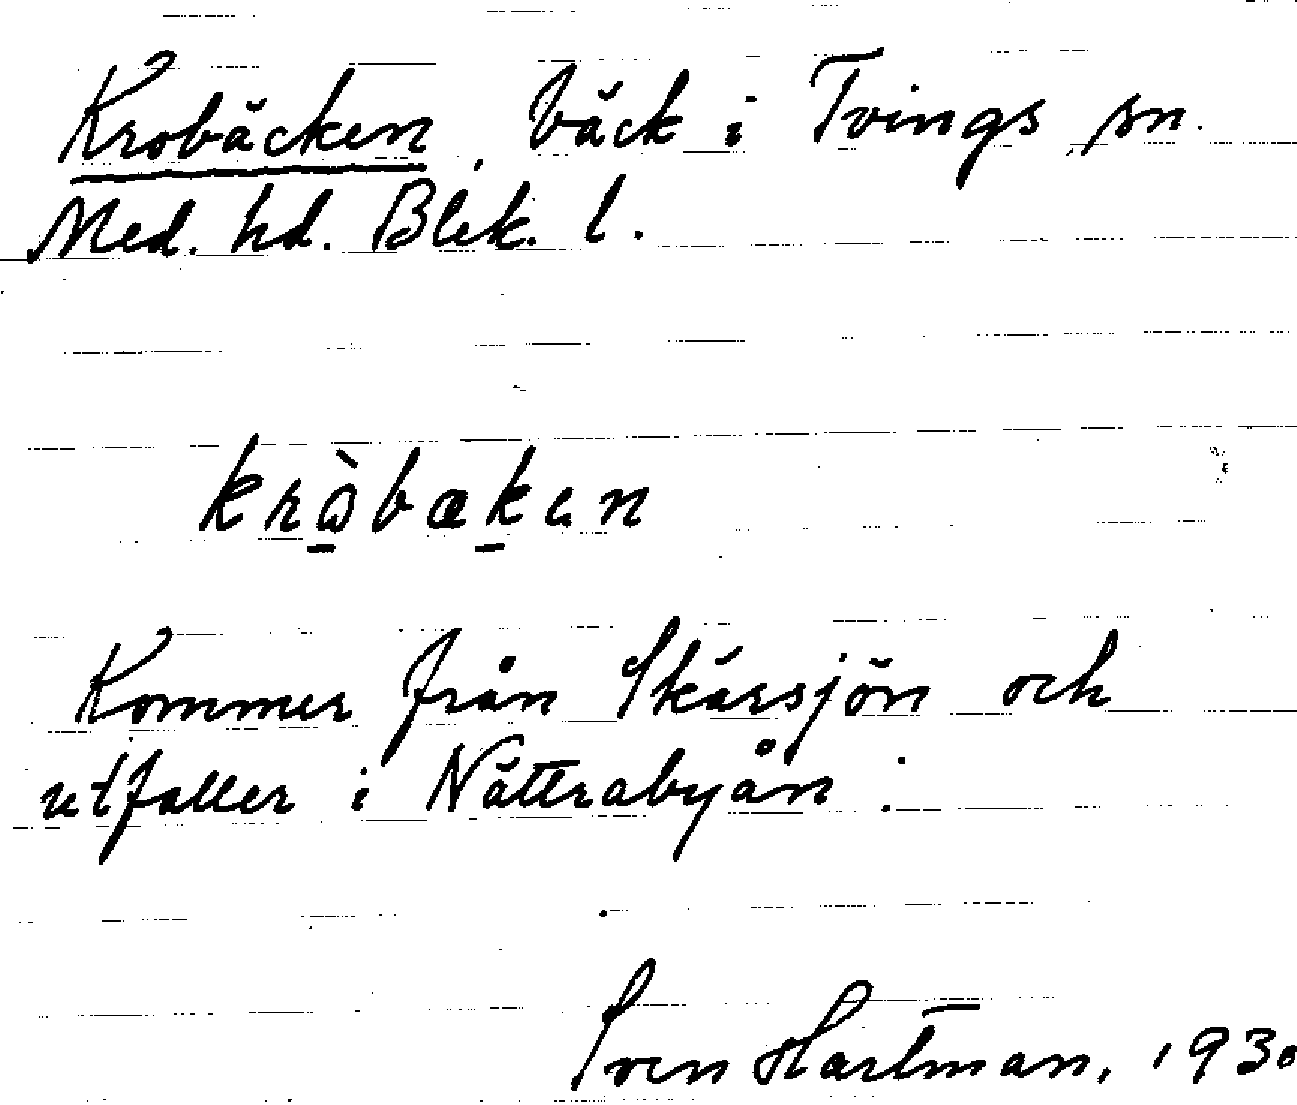 Krobäcken, bäck i Tvings sn.
Med. hd. Blek. l.
kròbækən
Kommer från Skärsjön och
utfaller i Nättrabyån.
Sven Hartman, 1930